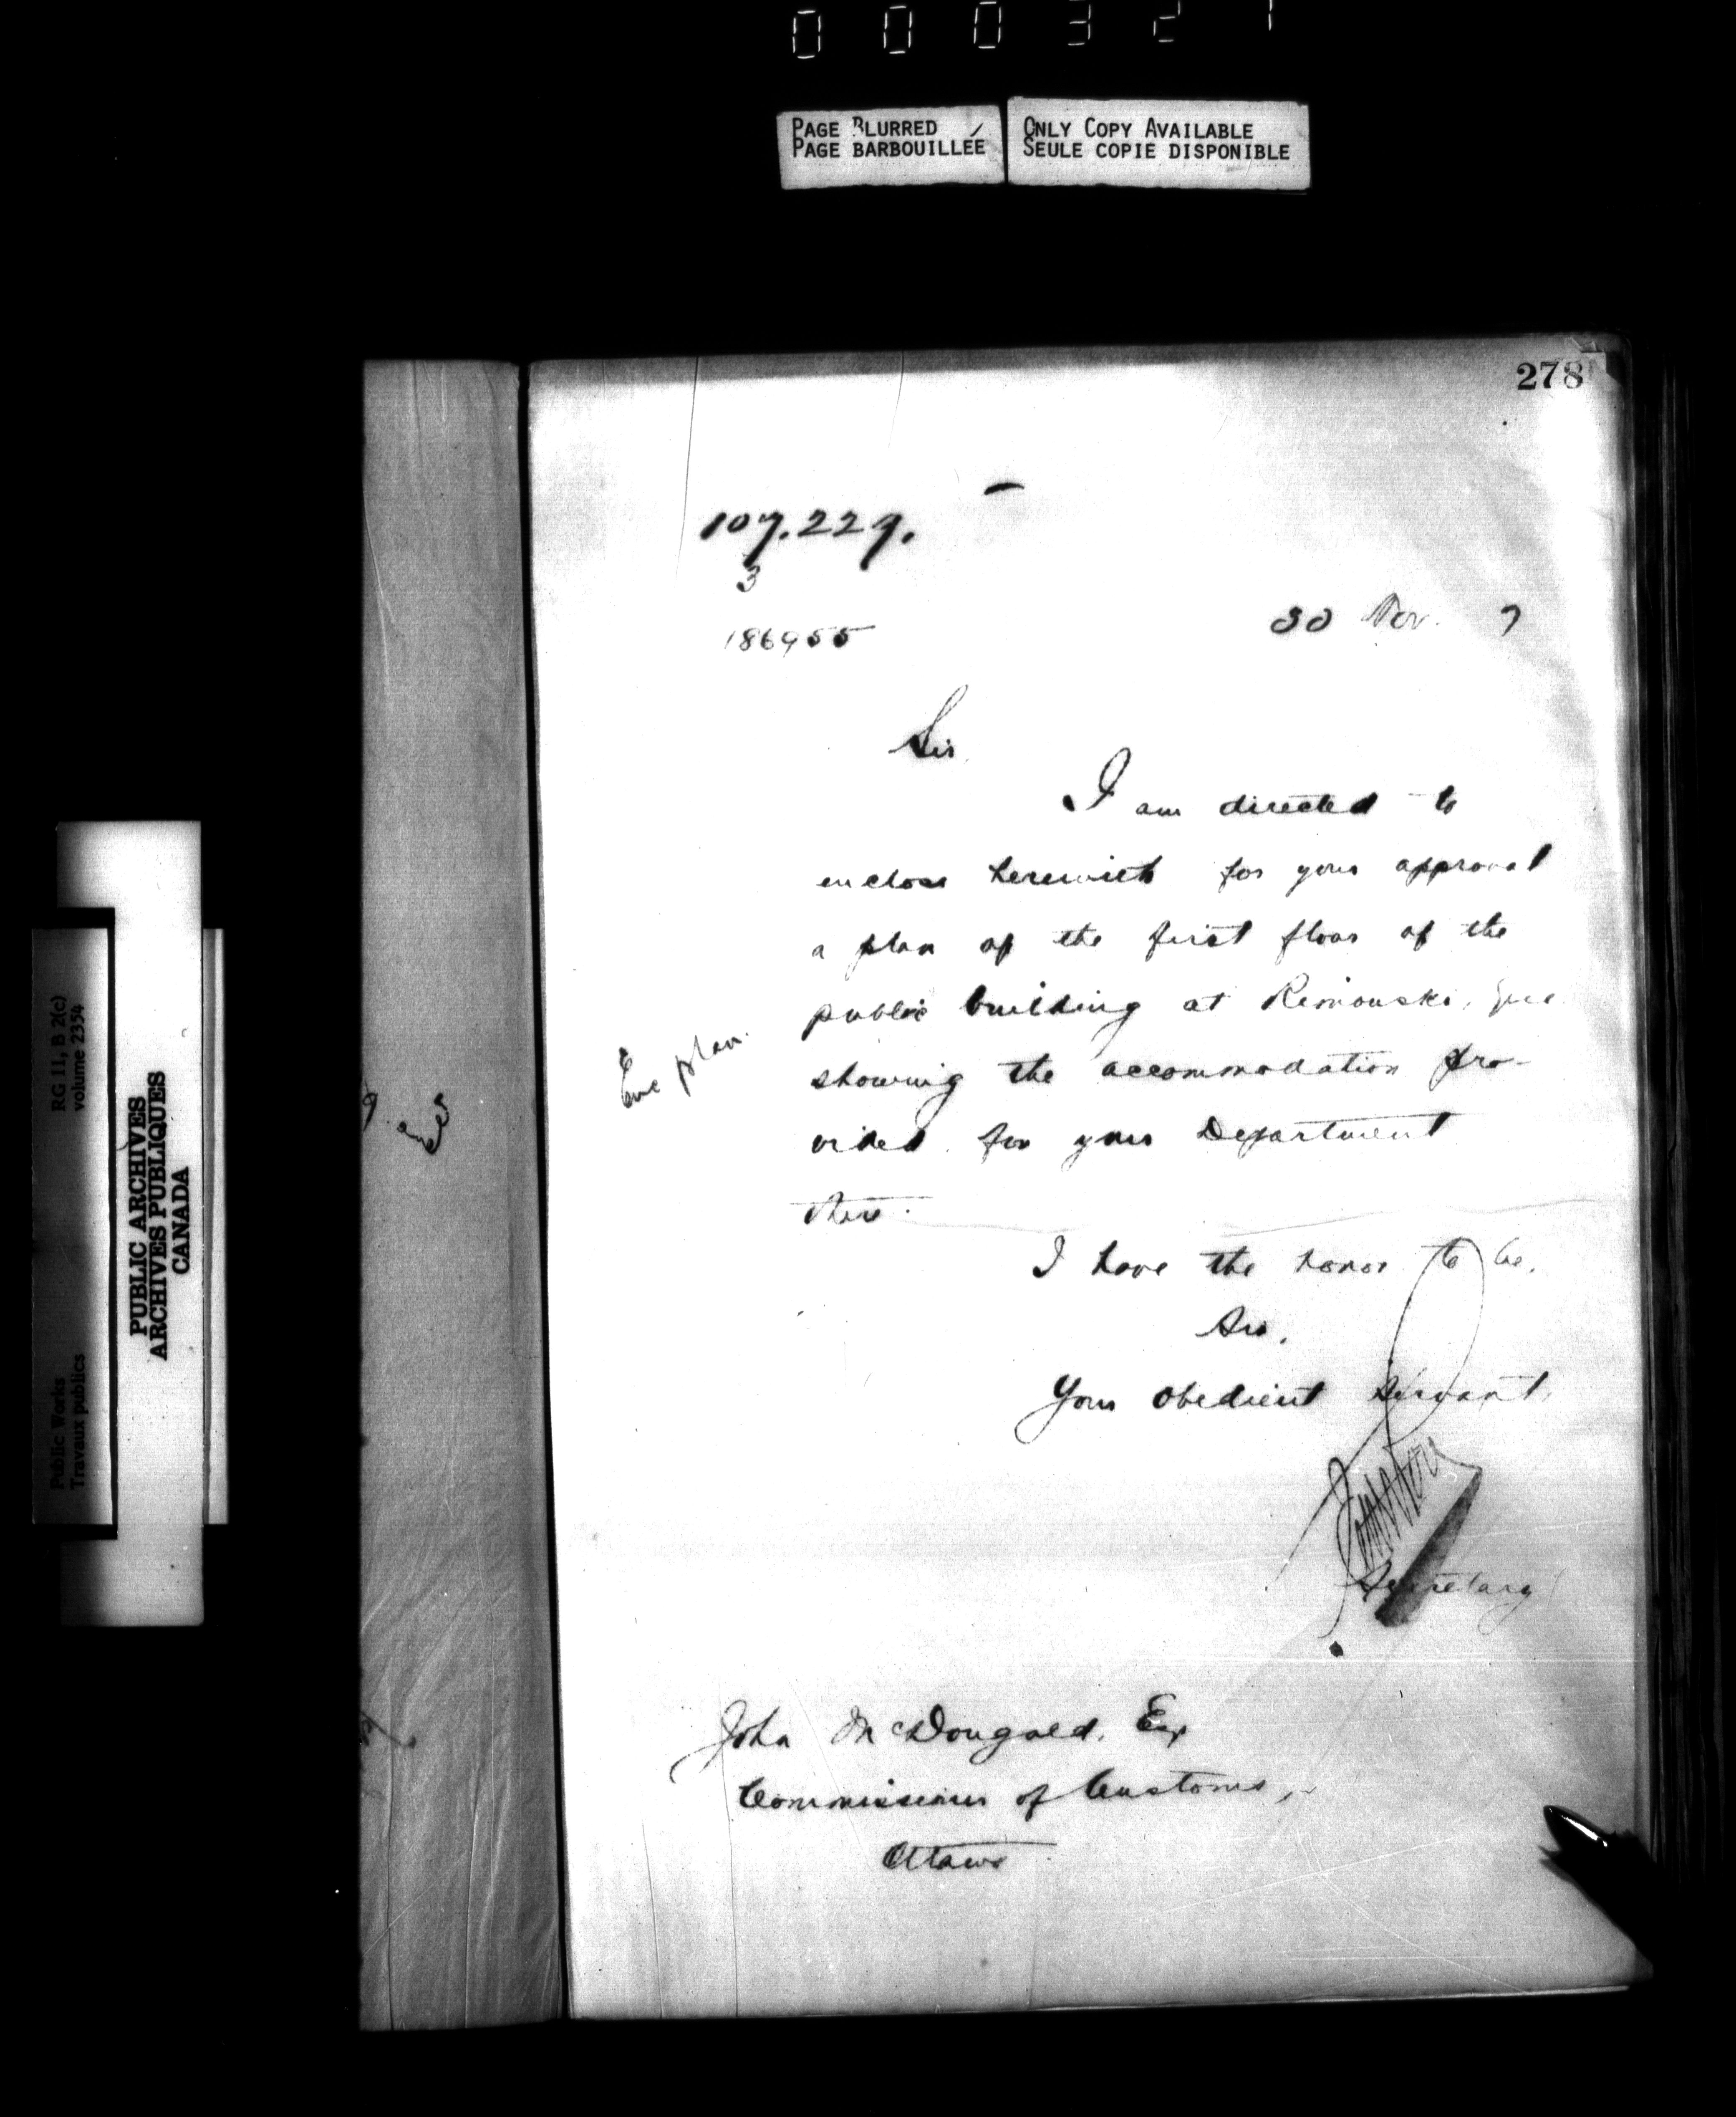 0 0 0 3 2 1
PAGE BLURRED
PAGE BARBOUILLÉE
ONLY COPY AVAILABLE
SEULE COPIE DISPONIBLE
278
107.229.
3
186955
30 Nov. 7
Sir,
I am directed to
enclose herewith for your approval
a plan of the first floor of the
public building at Rimouski, Que
showing the accommodation pro-
vided for your Department
there.
Enc plan.
I have the honor to be,
Sir,
Your obedient servant,
Secretary
John McDougald, Esq
Commissioner of Customs,
Ottawa
RG 11, B 2(c)
volume 2354
Public Works
Travaux publics
PUBLIC ARCHIVES
ARCHIVES PUBLIQUES
CANADA